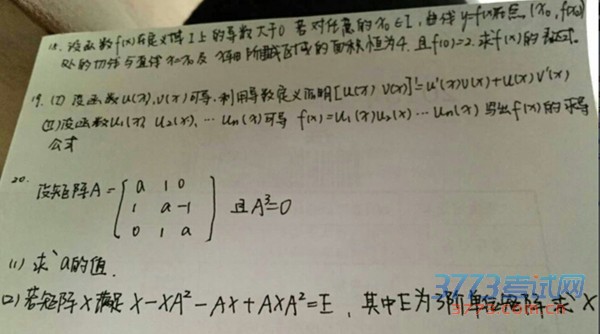 18. 设函数f(x)在定义域I上的导数大于0 若对任意的x₀∈I,曲线y=f(x)在点(x₀,f(x₀))
处的切线与直线x=x₀及x轴所围成区域的面积恒为4.且f(0)=2.求f(x)的表达式.
19. (I)设函数u(x),v(x)可导,利用导数定义证明[u(x)v(x)]'=u'(x)v(x)+u(x)v'(x)
(II)设函数u₁(x),u₂(x),…un(x)可导 f(x)=u₁(x)u₂(x)…un(x) 写出f(x)的求导
公式
20.
设矩阵A=
a 1 0
1 a -1
0 1 a
且A³=0
(1) 求a的值.
(2)若矩阵X满足X-XA²-AX+AXA²=E,其中E为3阶单位矩阵求X
3773考试网